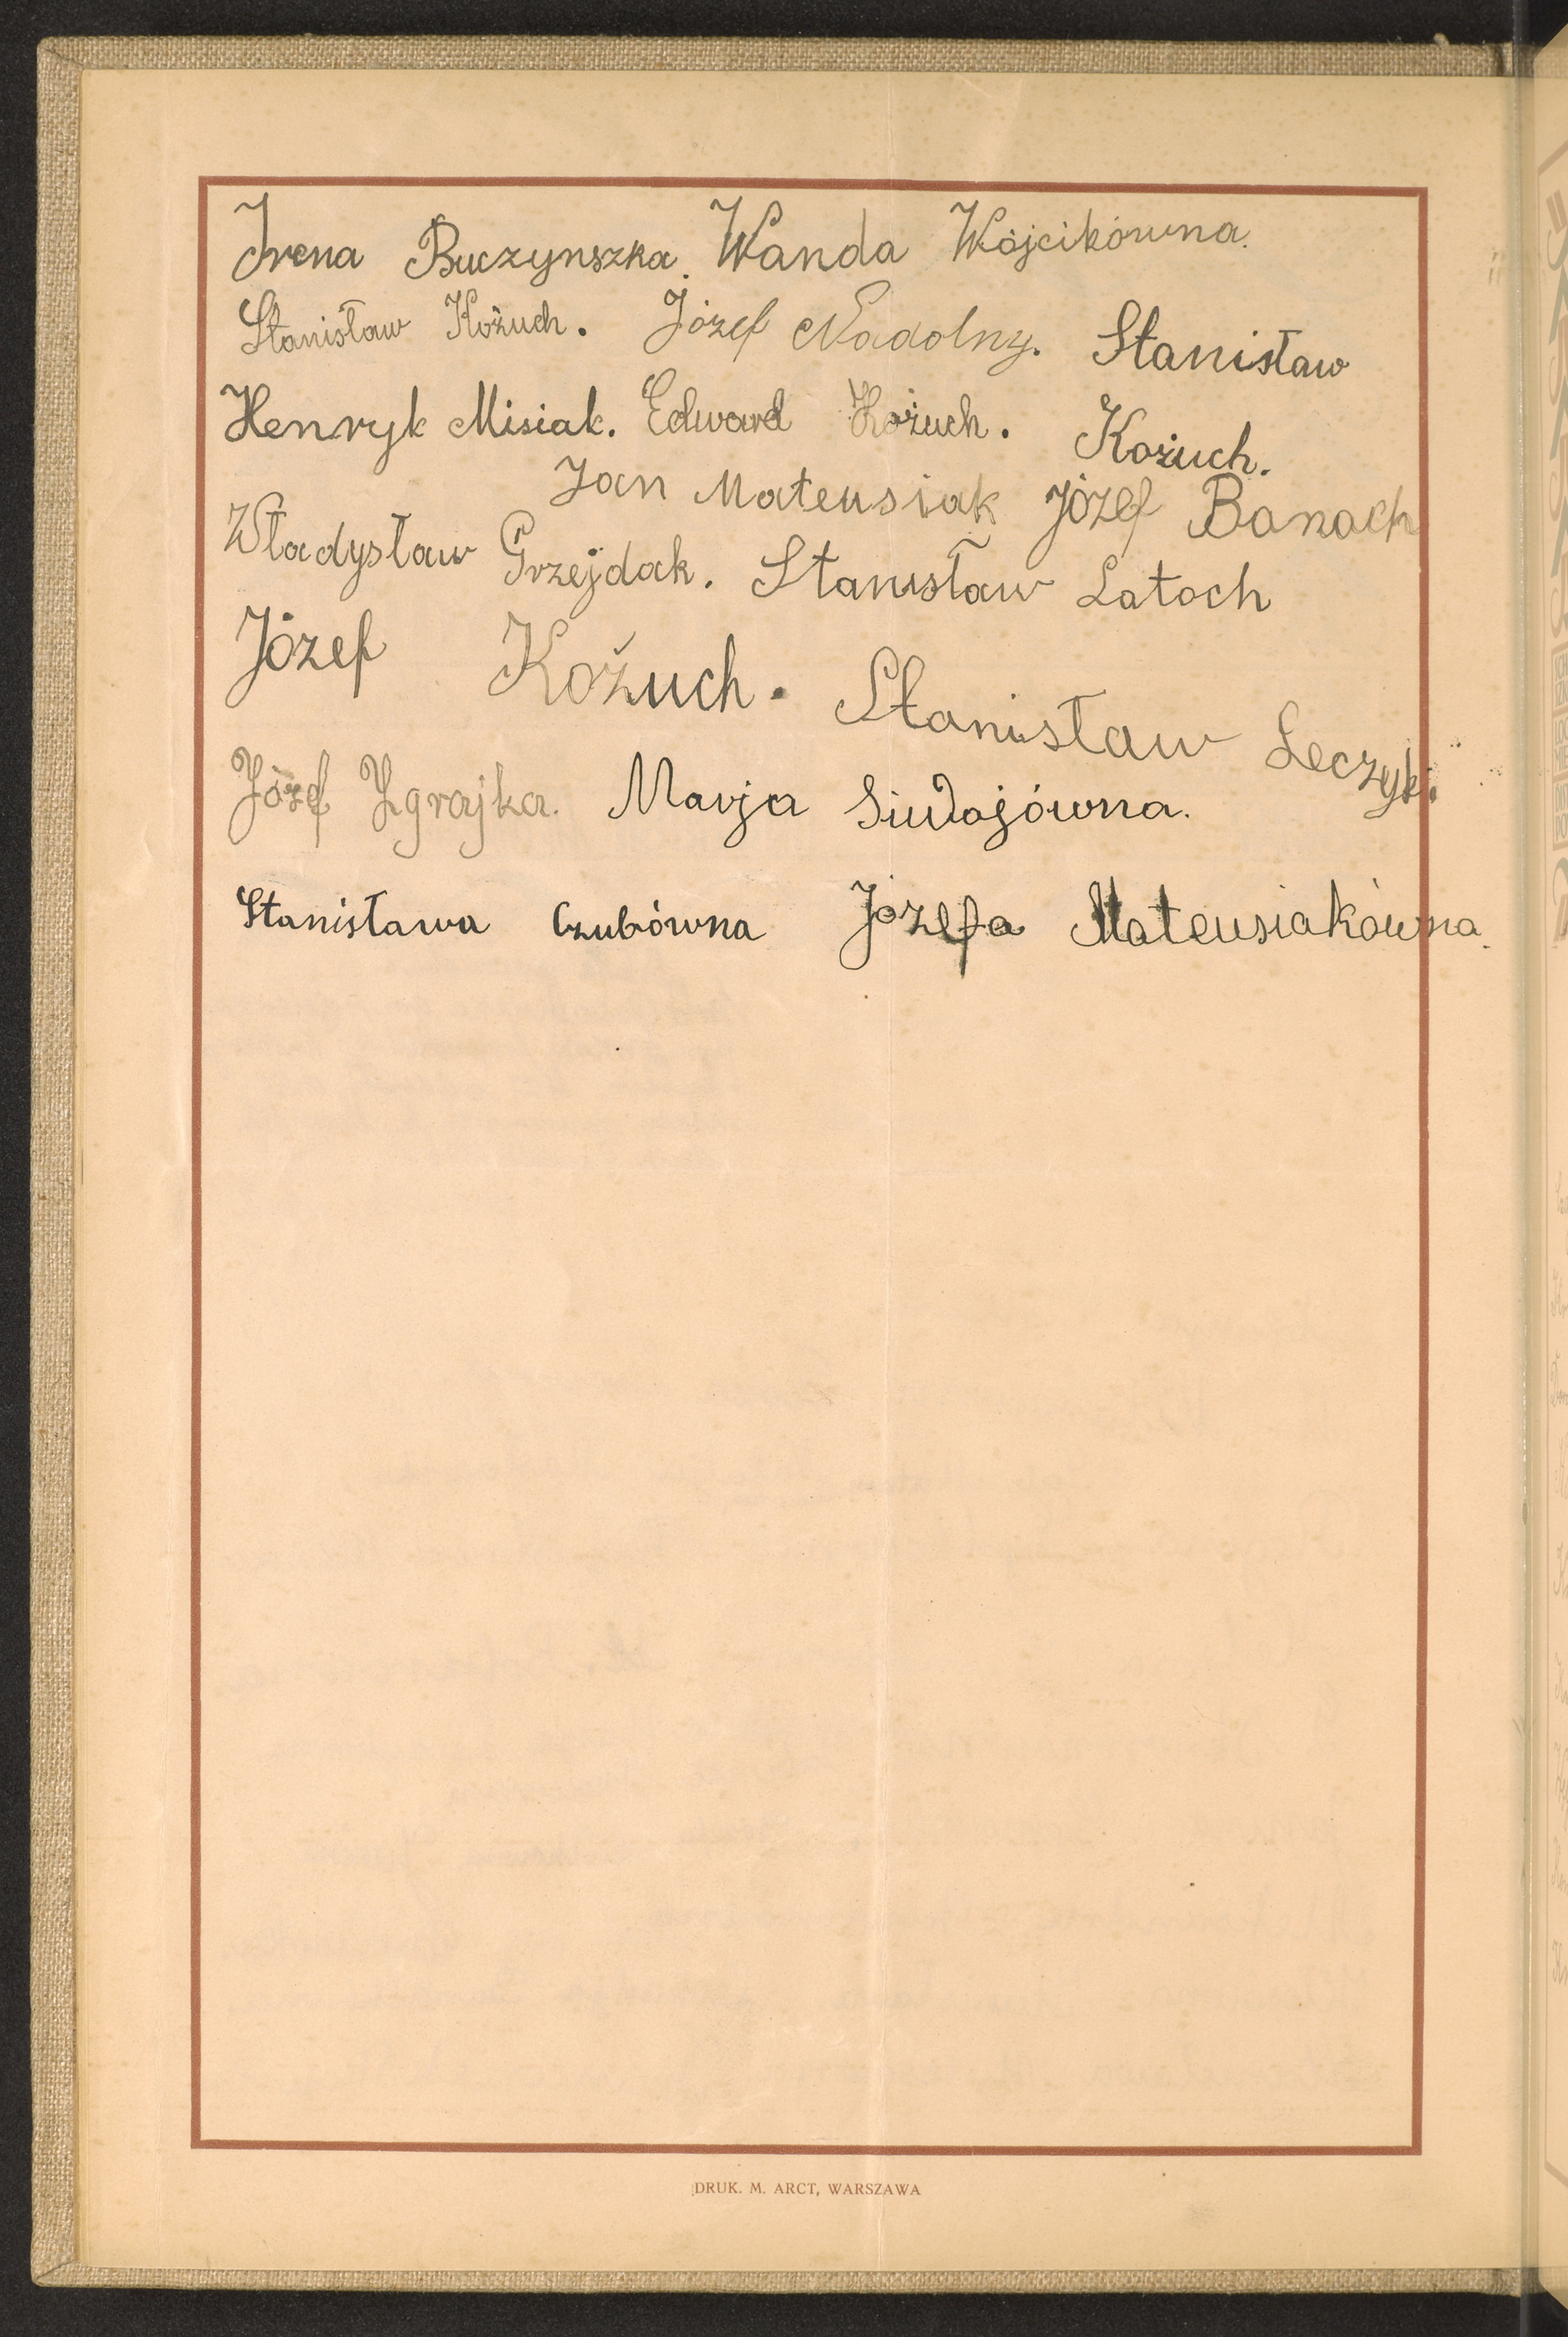 Irena Buczynszka. Wanda Wójcikówna.
Stanisław Kożuch. Józef Nadolny. Stanisław
Henryk Misiak. Edward Kożuch. Kożuch.
Jan Mateusiak Józef Banach
Władysław Grzejdak. Stanisław Latoch
Józef Kożuch. Stanisław Leczyk.
Józef Zgrajka. Marja Siwdojówna.
Stanisława Czubówna Józefa Mateusiakówna.
DRUK. M. ARCT, WARSZAWA